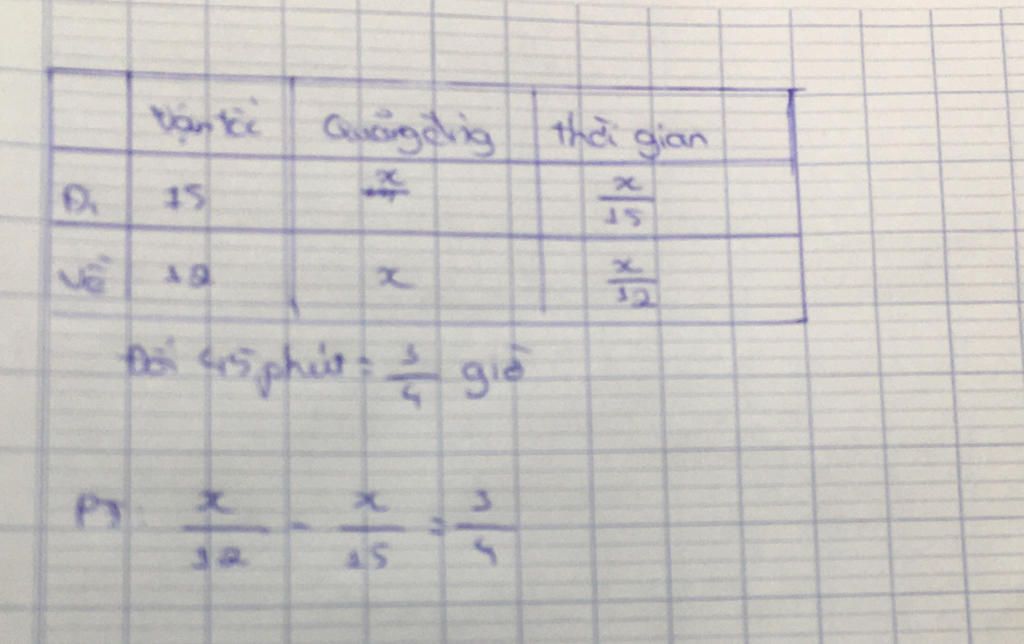 Vận tốc Quãng đường thời gian
Đi 15 x x/15
Về 12 x x/12
Đổi 45 phút = 3/4 giờ
PT x/12 - x/15 = 3/4